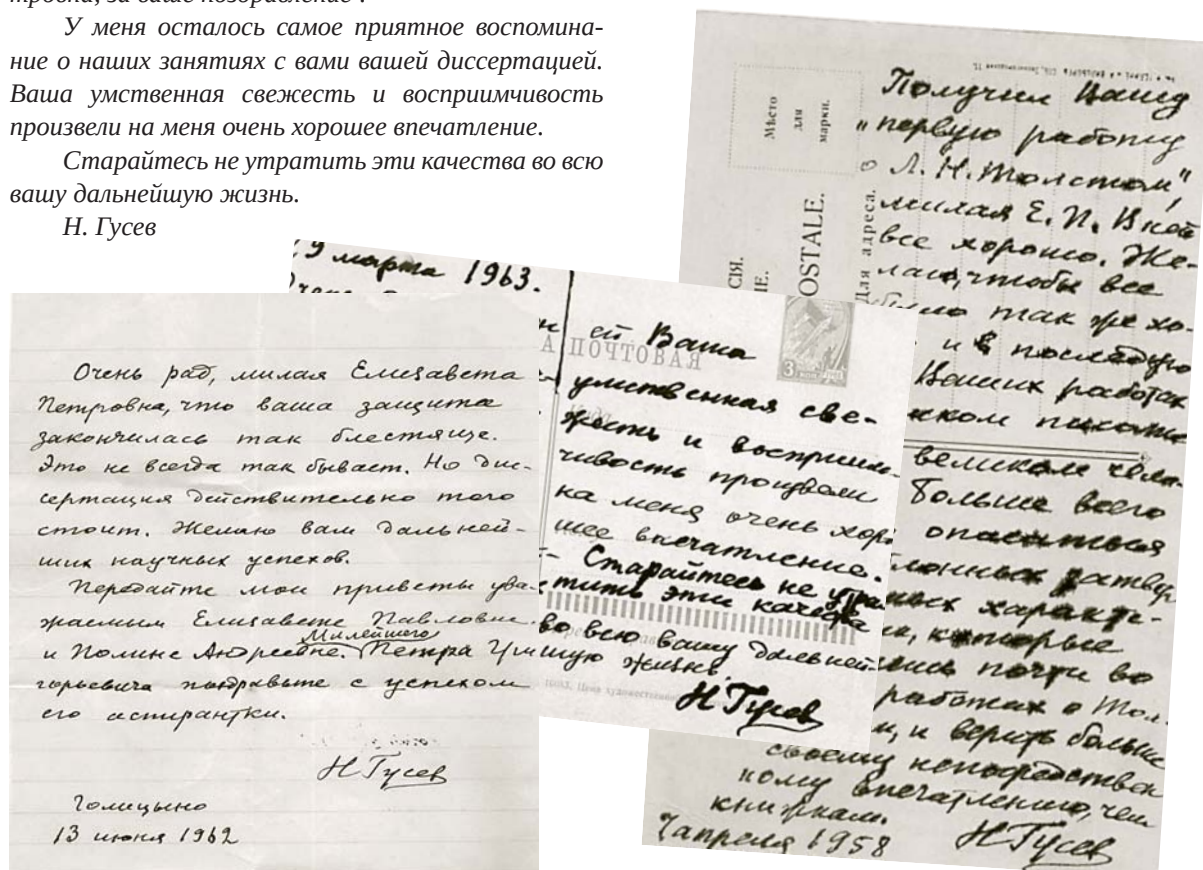 тровна, за ваше поздравление".
У меня осталось самое приятное воспомина-
ние о наших занятиях с вами вашей диссертацией.
Ваша умственная свежесть и восприимчивость
произвели на меня очень хорошее впечатление.
Старайтесь не утратить эти качества во всю
вашу дальнейшую жизнь.
Н. Гусев
Очень рад, милая Елисавета
Петровна, что ваша защита
закончилась так блестяще.
Это не всегда так бывает. Но дис-
сертация действительно того
стоит. Желаю вам дальней-
ших научных успехов.
Передайте мои приветы ува-
жаемым Елисавете Павловне
и Полине Андреевне. Милейшего Петра Гри-
горьевича поздравьте с успехом
его аспирантки.
Н Гусев
Голицыно
13 июня 1962
9 марта 1963.
А ПОЧТОВАЯ
3
ей Ваша
умственная све-
жесть и восприим-
чивость произвели
на меня очень хоро
шее впечатление.
Старайтесь не утра
тить эти качества
во всю вашу дальней
шую жизнь.
Н Гусев
Мѣсто
для
марки.
POSTALE.
Для адреса.
Получил Вашу
"первую работу
о Л. Н. Толстом",
милая Е. П. В ней
все хорошо. Же-
лаю, чтобы все
было так же хо-
и в последую
Ваших работах
великом чело-
Больше всего
опасаться
характе-
которые
почти во
работах о Тол-
и верить больше
своему непосредствен
ному впечатлению, чем
книжкам.
7 апреля 1958
Н Гусев